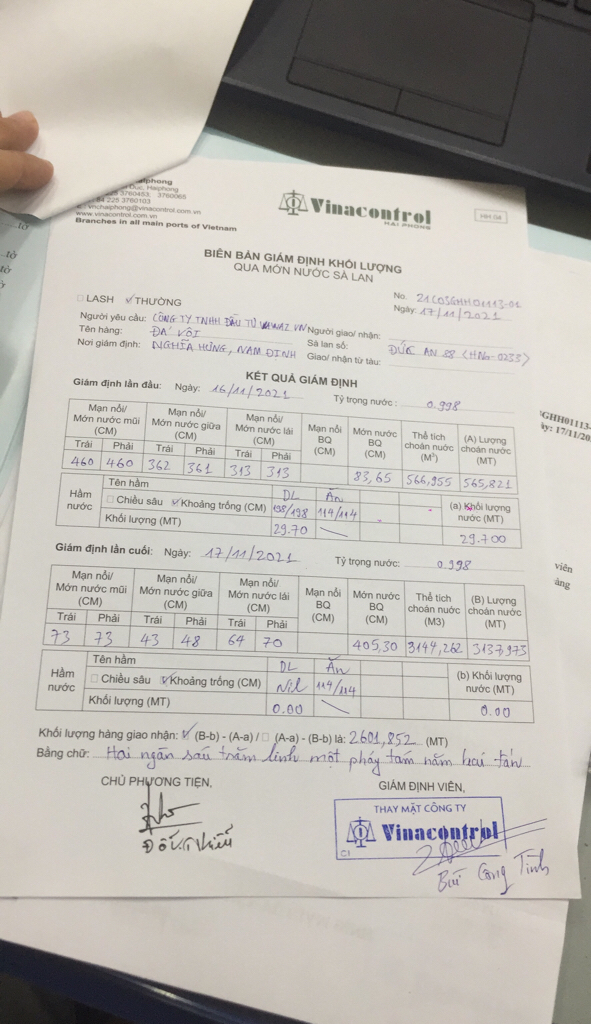 aiphong
Duc, Haiphong
225 3760453; 3760065
84 225 3760103
vnchaiphong@vinacontrol.com.vn
www.vinacontrol.com.vn
Branches in all main ports of Vietnam
Vinacontrol
HAI PHONG
HH.04
BIÊN BẢN GIÁM ĐỊNH KHỐI LƯỢNG
QUA MỚN NƯỚC SÀ LAN
LASH THƯỜNG
No. 21C03GHH01113-01
Ngày: 17/11/2021
Người yêu cầu: CÔNG TY TNHH ĐẦU TƯ VN Người giao/ nhận:
Tên hàng: ĐÁ VÔI Sà lan số: ĐỨC AN 88 (HNo-0233)
Nơi giám định: NGHĨA HƯNG, NAM ĐỊNH Giao/ nhận từ tàu:
KẾT QUẢ GIÁM ĐỊNH
Giám định lần đầu: Ngày: 16/11/2021 Tỷ trọng nước: 0.998
Mạn nổi/ Mớn nước mũi (CM) Mạn nổi/ Mớn nước giữa (CM) Mạn nổi/ Mớn nước lái (CM) Mạn nổi BQ (CM) Mớn nước BQ (CM) Thể tích choán nước (M³) (A) Lượng choán nước (MT)
Trái Phải Trái Phải Trái Phải
460 460 362 361 313 313 83,65 566,955 565,821
Hầm nước Tên hầm DL Ăn (a) Khối lượng nước (MT)
Chiều sâu Khoảng trống (CM) 198/198 114/114
Khối lượng (MT) 29.70 29.700
Giám định lần cuối: Ngày: 17/11/2021 Tỷ trọng nước: 0.998
Mạn nổi/ Mớn nước mũi (CM) Mạn nổi/ Mớn nước giữa (CM) Mạn nổi/ Mớn nước lái (CM) Mạn nổi BQ (CM) Mớn nước BQ (CM) Thể tích choán nước (M3) (B) Lượng choán nước (MT)
Trái Phải Trái Phải Trái Phải
73 73 43 48 64 70 405,30 3144,262 3137,973
Hầm nước Tên hầm DL Ăn (b) Khối lượng nước (MT)
Chiều sâu Khoảng trống (CM) Nil 114/114
Khối lượng (MT) 0.00 0.00
Khối lượng hàng giao nhận: (B-b) - (A-a) / (A-a) - (B-b) là: 2601,852 (MT)
Bằng chữ: Hai ngàn sáu trăm linh một phẩy tám năm hai tấn
CHỦ PHƯƠNG TIỆN, GIÁM ĐỊNH VIÊN,
THAY MẶT CÔNG TY
Vinacontrol
C1
Bùi Công Tình
GHH01113-
y: 17/11/202
viên
àng